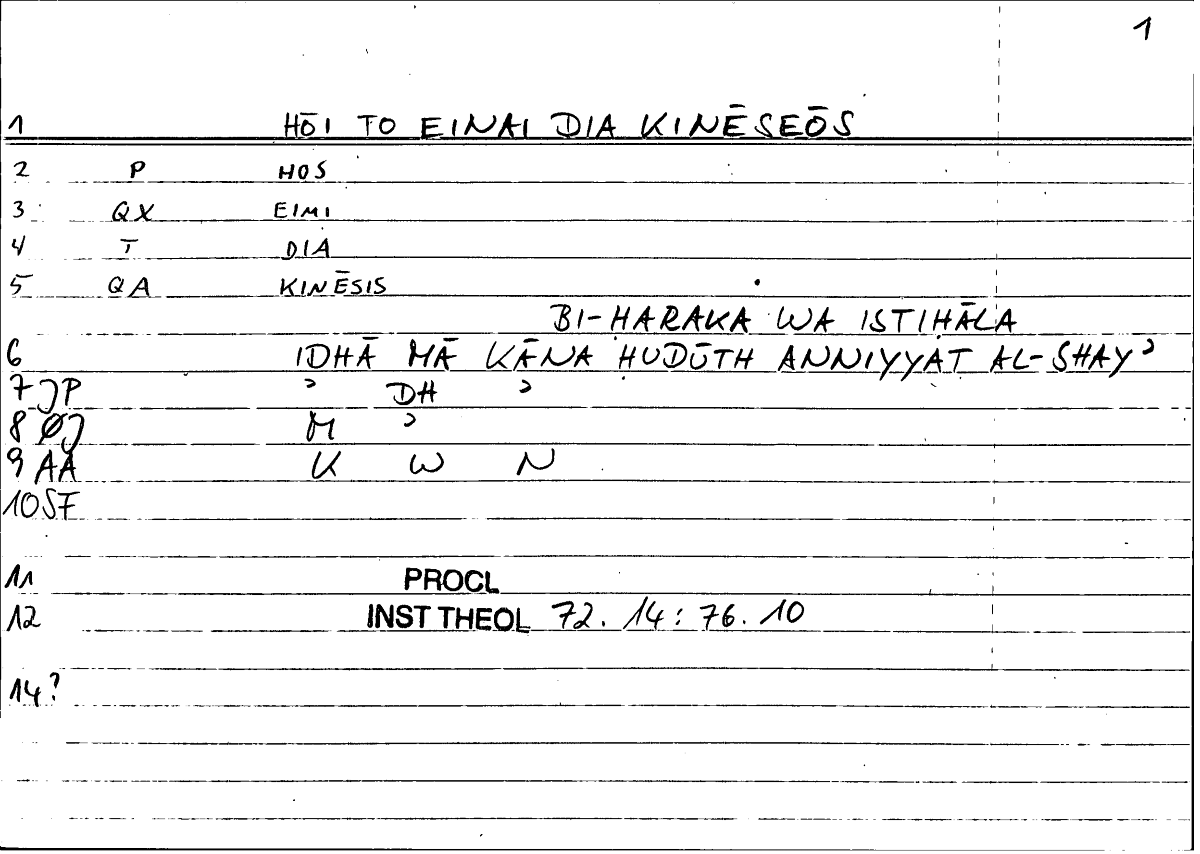 1
1 HŌI TO EINAI DIA KINĒSEŌS
2 P HOS
3 QX EIMI
4 T DIA
5 QA KINĒSIS
BI-ḤARAKA WA ISTIḤĀLA
6 IDHĀ MĀ KĀNA ḤUDŪTH ANNIYYAT AL-SHAYʾ
7 JP ʾ DH ʾ
8 ØJ M ʾ
9 AA K W N
10 SF
11 PROCL
12 INST THEOL 72. 14: 76. 10
14?